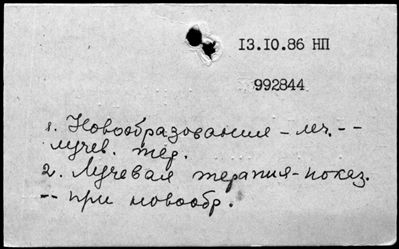 13.10.86 НП
992844
1. Новообразования - леч. --
лучев. тер.
2. Лучевая терапия - показ.
-- при новообр.